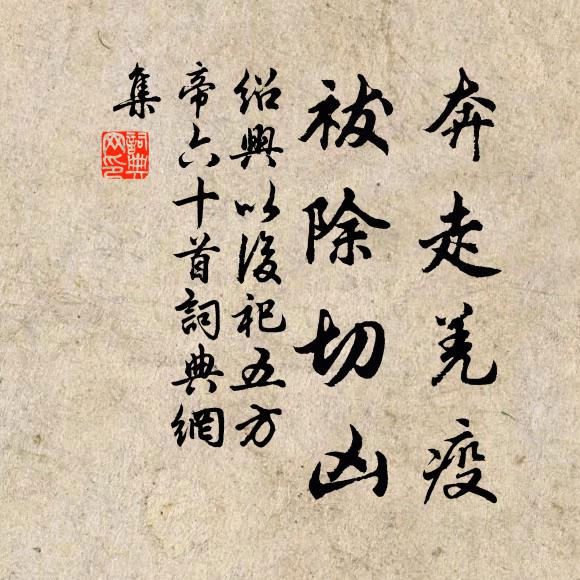 奔走羌疫
祓除切凶
紹興以後祀五方
帝六十首詞典網
集
詞典
网印